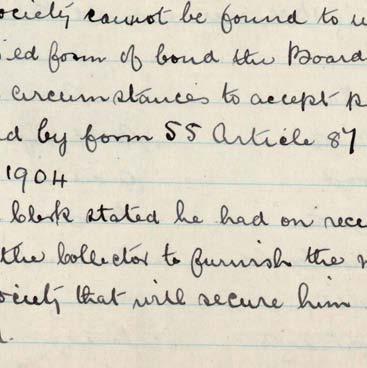 ociety cannot be found to
ed form of bond the Board
circumstances to accept
d by form 55 Article 87
1904
clerk stated he had on rece
the Collector to furnish the
ociety that will secure him